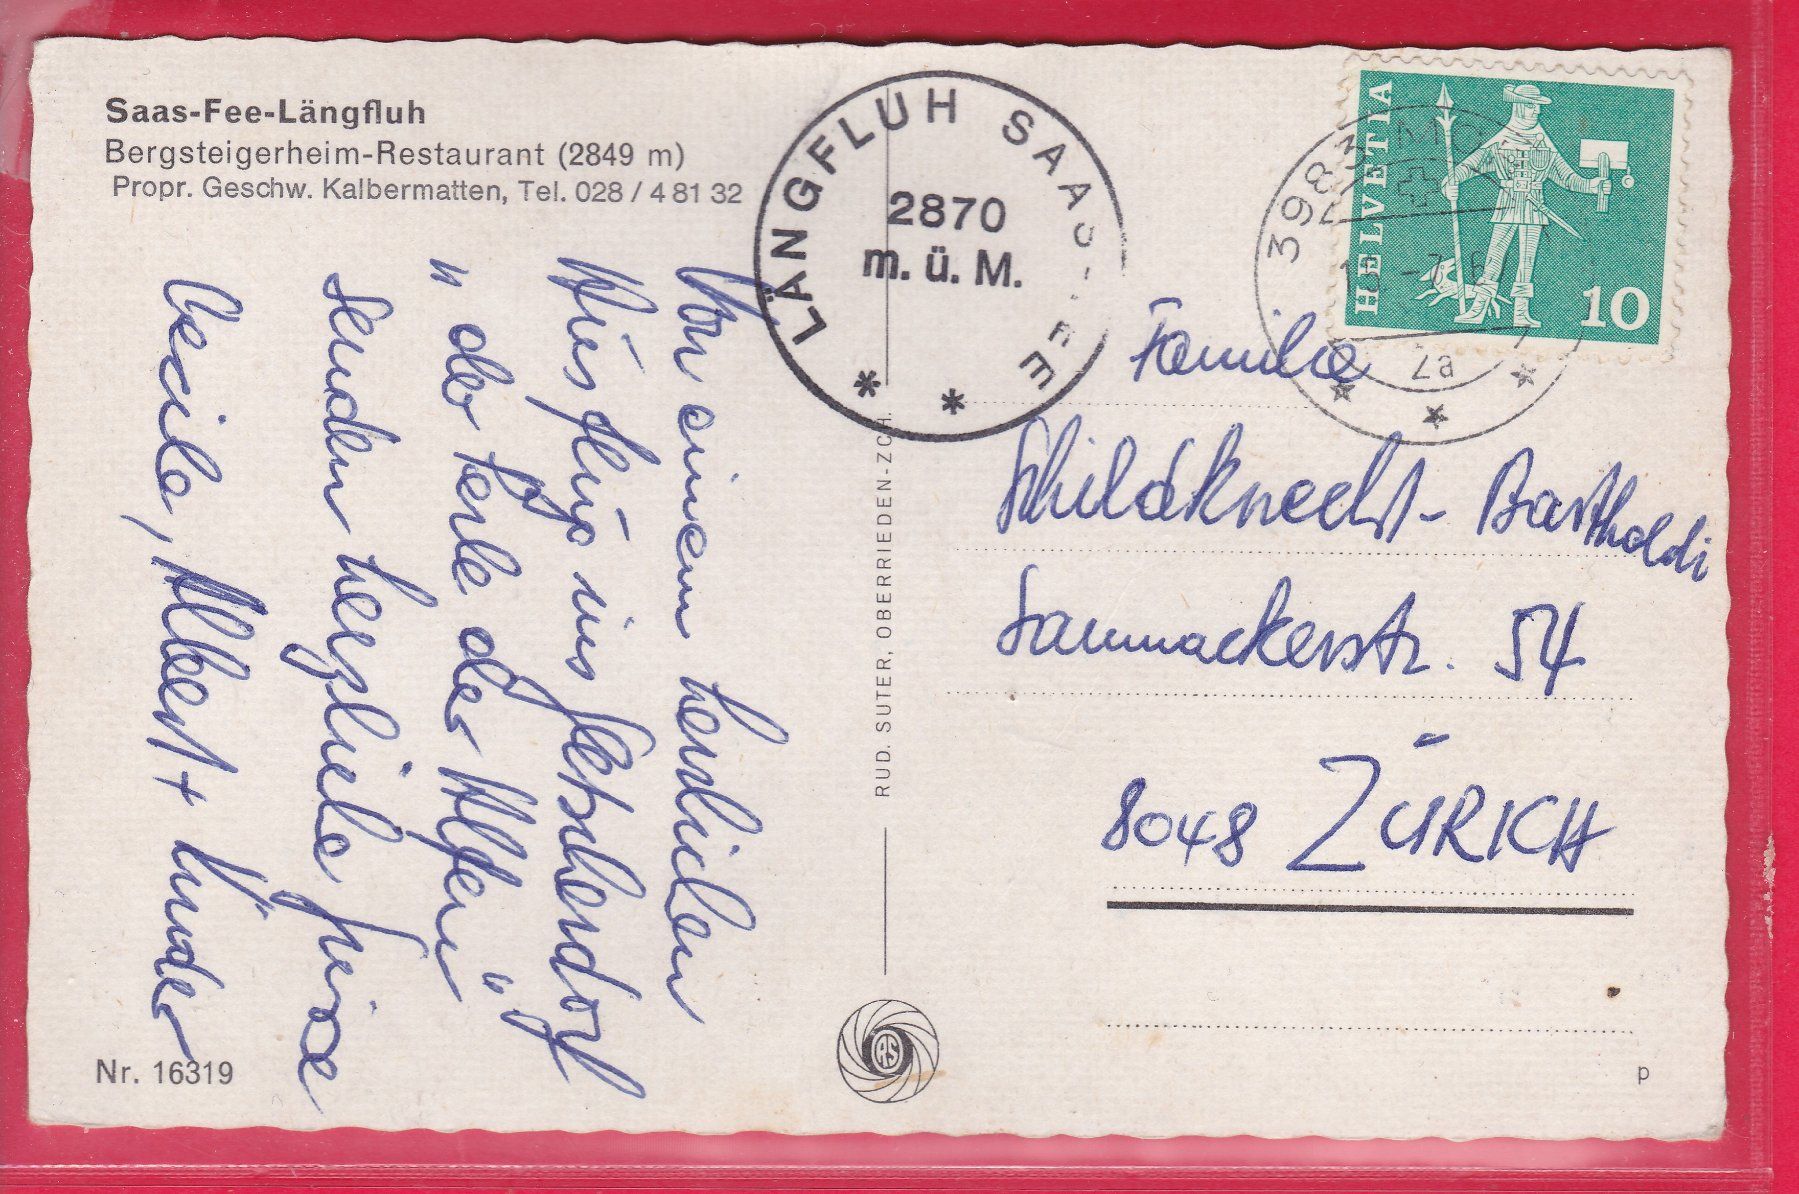 Saas-Fee-Längfluh
Bergsteigerheim-Restaurant (2849 m)
Propr. Geschw. Kalbermatten, Tel. 028 / 4 81 32
LÄNGFLUH SAAS-FEE
2870
m. ü. M.
* *
HELVETIA
10
3983
Von einem herrlichen
Ausflug ins Gletscherdorf
"der Perle der Alpen"
senden herzliche Grüsse
Cecile, Albert + Kinder
RUD. SUTER, OBERRIEDEN-ZCH.
Familie
Schildknecht-Bartholdi
Saumackerstr. 54
8048 ZÜRICH
Nr. 16319
RS
p